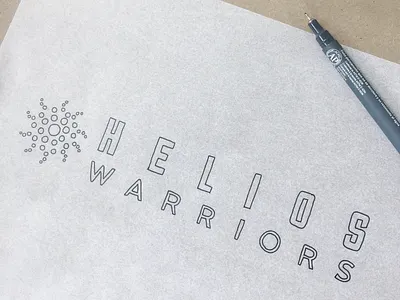 HELIOS
WARRIORS